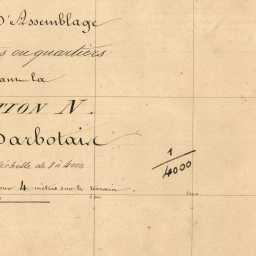 D'Assemblage
ou quartiers
dans la
TION N.
Darbotaix
Echelle de 1 à 4000
1/4000
pour 4 mètres sur le terrain.